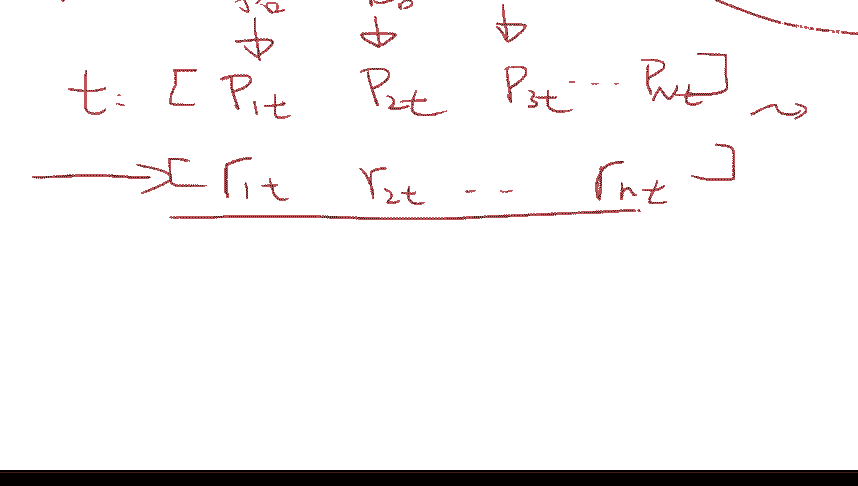 t: [ P1t P2t P3t ... PNt ]
[ r1t r2t -- rnt ]